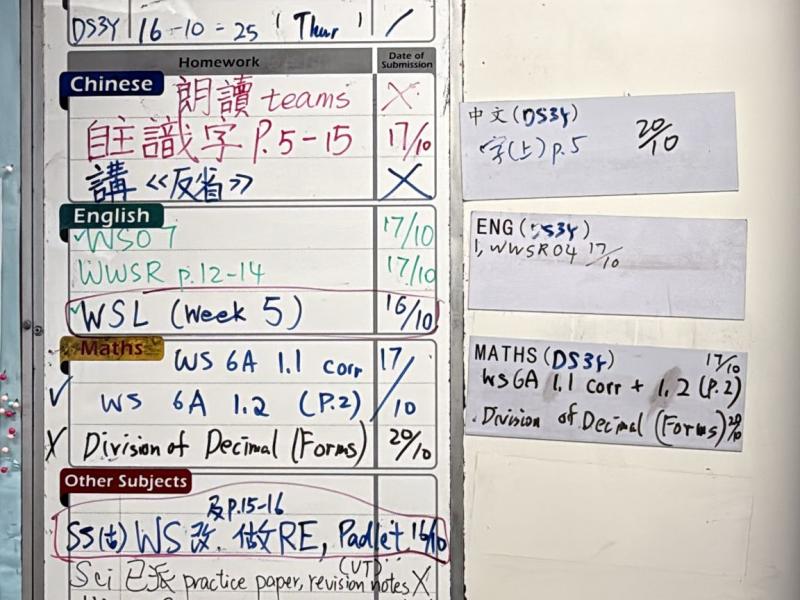 DS3Y 16-10-25 (Thur) /
Homework Date of Submission
Chinese 朗讀 teams X
自主識字 P.5-15 17/10
講《反省》 X
English
✓WS07 17/10
WWSR p.12-14 17/10
✓WSL (Week 5) 16/10
Maths WS 6A 1.1 corr 17/10
✓ WS 6A 1.2 (P.2)
X Division of Decimal (Forms) 20/10
Other Subjects
及p.15-16
SS(古) WS 改. 做RE, Padlet. 16/10
(UT)
Sci 已派 practice paper, revision notes X
中文(DS3Y)
字(上) p.5 20/10
ENG (DS3Y)
1, WWSR04 17/10
MATHS (DS3Y) 17/10
WS 6A 1.1 corr + 1.2 (P.2)
.Division of Decimal (Forms) 20/10